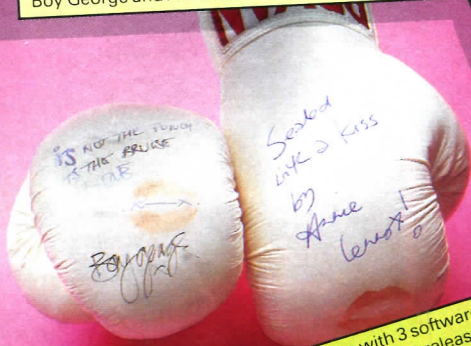 Boy George and
IS NOT THE PUNCH
IS THE BRUISE
Boy George
Sealed
with a kiss
by
Annie
Lennox!
with 3 softwar
releas